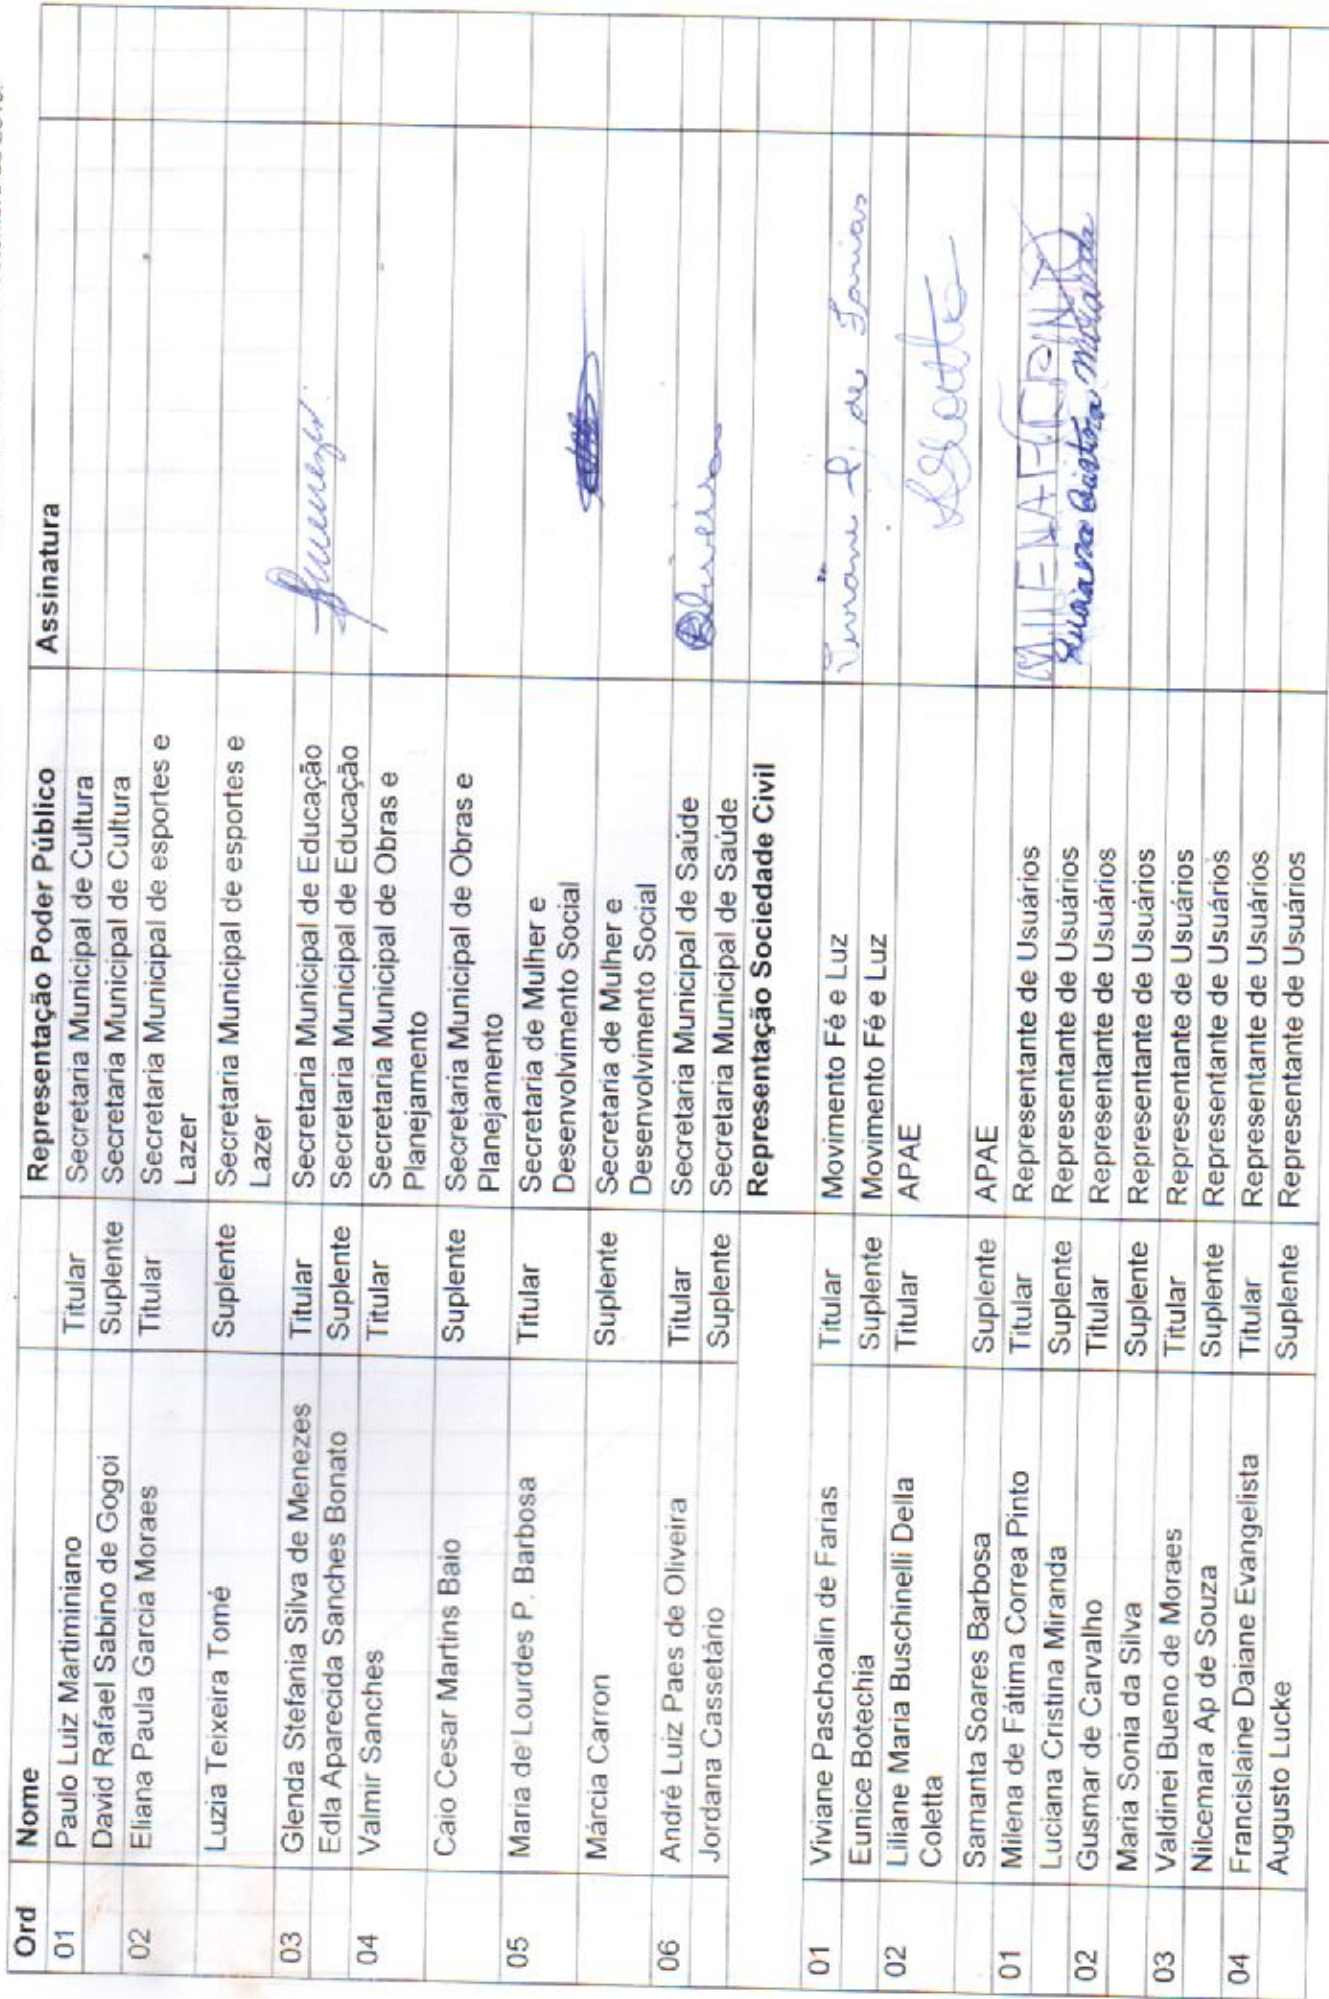 Ord Nome Representação Poder Público Assinatura
01 Paulo Luiz Martiminiano Titular Secretaria Municipal de Cultura
David Rafael Sabino de Gogoi Suplente Secretaria Municipal de Cultura
02 Eliana Paula Garcia Moraes Titular Secretaria Municipal de esportes e
Lazer
Luzia Teixeira Tomé Suplente Secretaria Municipal de esportes e
Lazer
03 Glenda Stefania Silva de Menezes Titular Secretaria Municipal de Educação
Edla Aparecida Sanches Bonato Suplente Secretaria Municipal de Educação
04 Valmir Sanches Titular Secretaria Municipal de Obras e
Planejamento
Caio Cesar Martins Baio Suplente Secretaria Municipal de Obras e
Planejamento
05 Maria de Lourdes P. Barbosa Titular Secretaria de Mulher e
Desenvolvimento Social
Márcia Carron Suplente Secretaria de Mulher e
Desenvolvimento Social
06 André Luiz Paes de Oliveira Titular Secretaria Municipal de Saúde
Jordana Cassetário Suplente Secretaria Municipal de Saúde
Representação Sociedade Civil
01 Viviane Paschoalin de Farias Titular Movimento Fé e Luz Viviane P. de Farias
Eunice Botechia Suplente Movimento Fé e Luz
02 Liliane Maria Buschinelli Della Titular APAE
Coletta
Samanta Soares Barbosa Suplente APAE
01 Milena de Fátima Correa Pinto Titular Representante de Usuários
Luciana Cristina Miranda Suplente Representante de Usuários Luciana Cristina Miranda
02 Gusmar de Carvalho Titular Representante de Usuários
Maria Sonia da Silva Suplente Representante de Usuários
03 Valdinei Bueno de Moraes Titular Representante de Usuários
Nilcemara Ap de Souza Suplente Representante de Usuários
04 Francislaine Daiane Evangelista Titular Representante de Usuários
Augusto Lucke Suplente Representante de Usuários